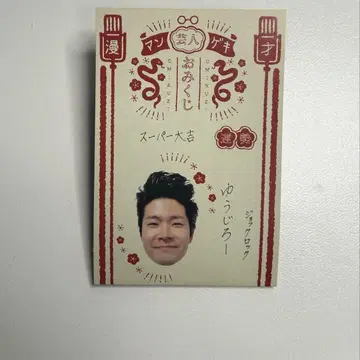 漫
マンゲキ
芸人
一才
おみくじ
OMIKUJI
スーパー大吉
運勢
ゆうじろー
ジョックロック